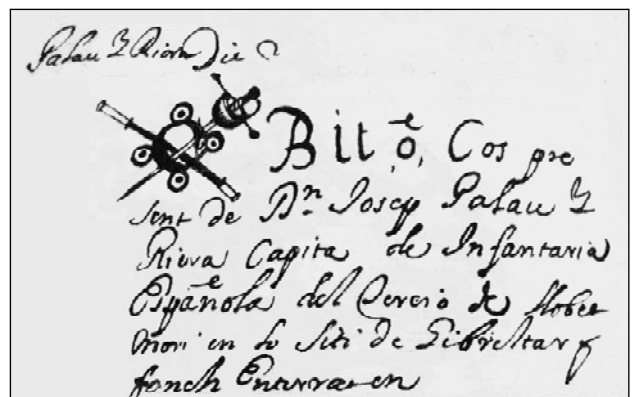 Palau y Riera Die
Bit.º, Cos pre
sent de Dn. Josep Palau y
Riera Capita de Infantaria
Española del Tercio de
mori en lo Siti de Gibreltar y
fonch Enterrat en